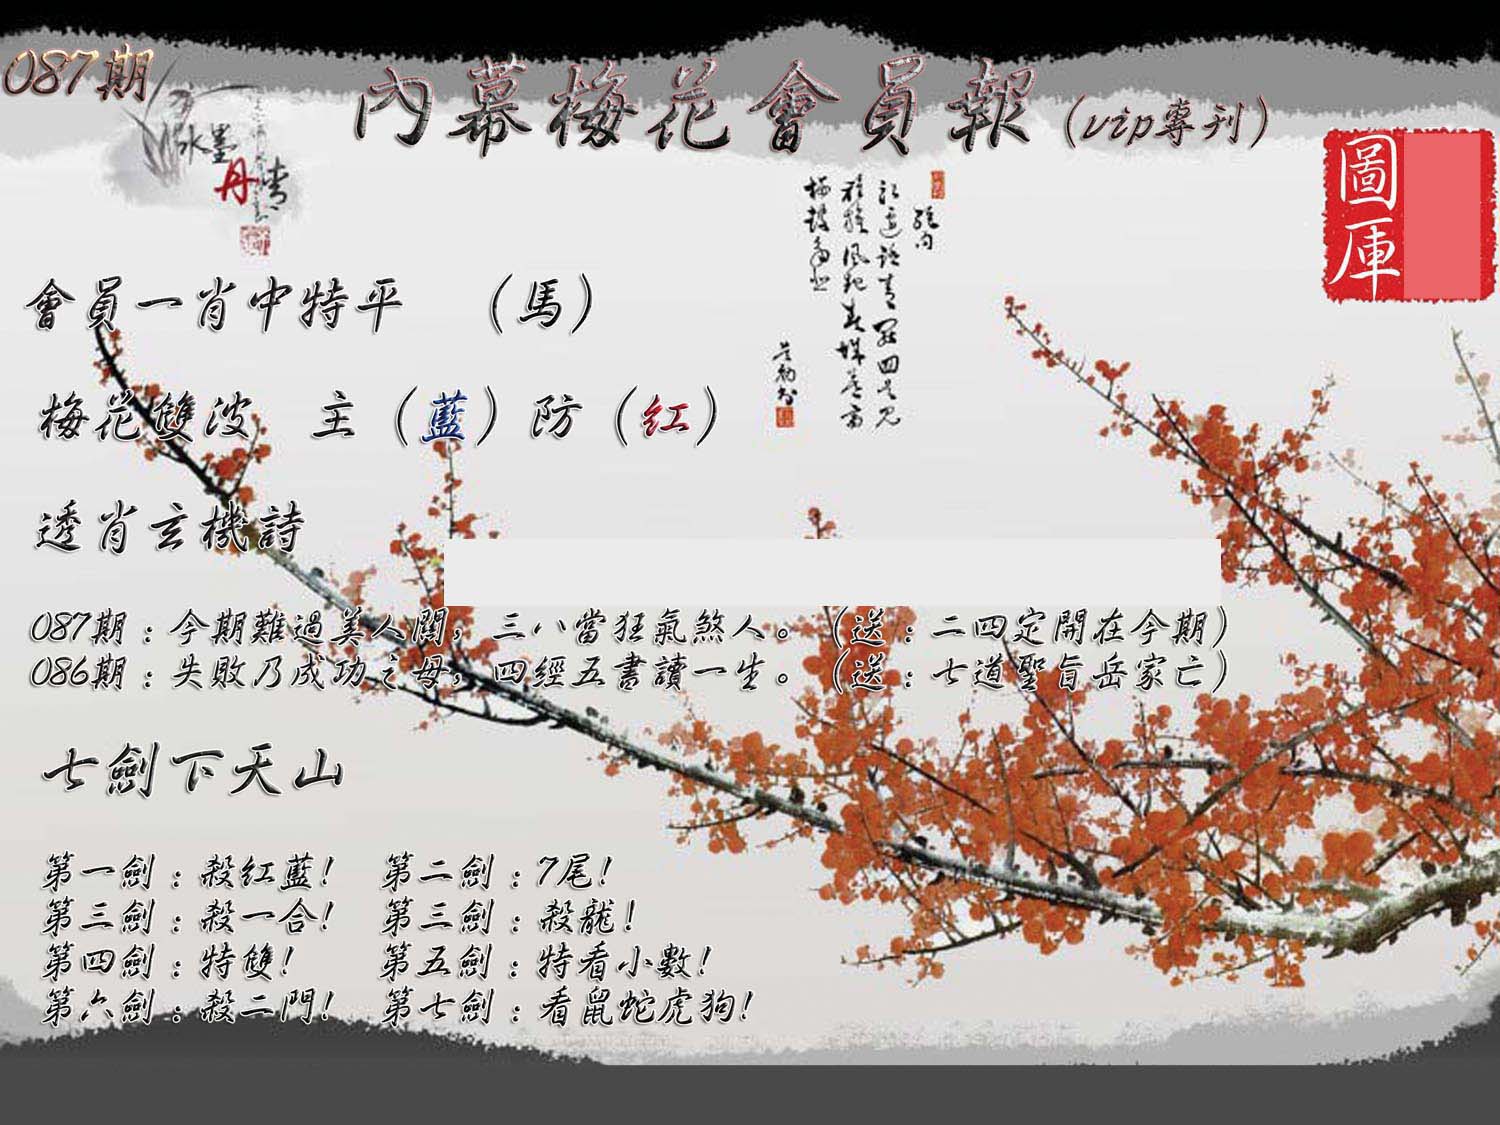 087期
內幕梅花會員報(vip專刊)
水墨
丹青
圖庫
會員一肖中特平 (馬)
梅花雙波 主(藍)防(紅)
透肖玄機詩
087期:今期難過美人關,三八當狂氣煞人。(送:二四定開在今期)
086期:失敗乃成功之母,四經五書讀一生。(送:七道聖旨岳家亡)
七劍下天山
第一劍:殺紅藍! 第二劍:7尾!
第三劍:殺一合! 第三劍:殺龍!
第四劍:特雙! 第五劍:特看小數!
第六劍:殺二門! 第七劍:看鼠蛇虎狗!